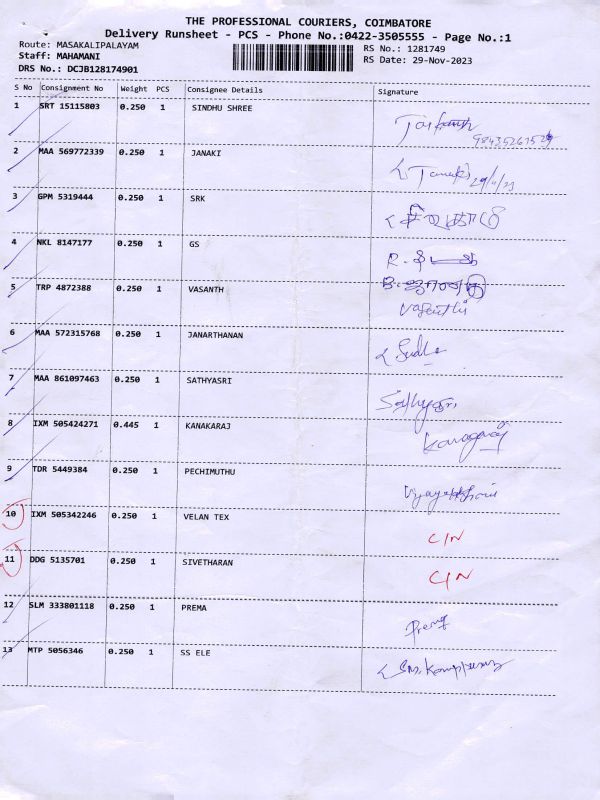 THE PROFESSIONAL COURIERS, COIMBATORE
Delivery Runsheet - PCS - Phone No.:0422-3505555 - Page No.:1
Route: MASAKALIPALAYAM RS No.: 1281749
Staff: MAHAMANI RS Date: 29-Nov-2023
DRS No.: DCJB128174901
S No Consignment No Weight PCS Consignee Details Signature
1 SRT 15115803 0.250 1 SINDHU SHREE
2 MAA 569772339 0.250 1 JANAKI Janaki 29/11/23
3 GPM 5319444 0.250 1 SRK
4 NKL 8147177 0.250 1 GS
5 TRP 4872388 0.250 1 VASANTH Vasanthi
6 MAA 572315768 0.250 1 JANARTHANAN Sudha
7 MAA 861097463 0.250 1 SATHYASRI Sathyasri
8 IXM 505424271 0.445 1 KANAKARAJ Kanagaraj
9 TDR 5449384 0.250 1 PECHIMUTHU
10 IXM 505342246 0.250 1 VELAN TEX C/N
11 DDG 5135701 0.250 1 SIVETHARAN C/N
12 SLM 333801118 0.250 1 PREMA Prema
13 MTP 5056346 0.250 1 SS ELE